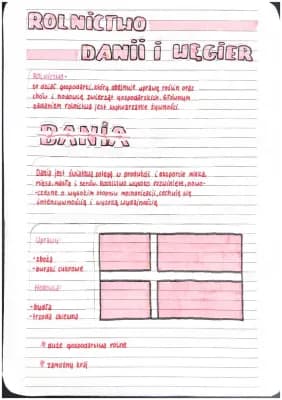 ROLNICTWO
DANII i WĘGIER
ROLNICTWO -
to dział gospodarki, który obejmuje uprawę roślin oraz
chów i hodowlę zwierząt gospodarskich. Głównym
zadaniem rolnictwa jest wytwarzanie żywności.
DANIA
Dania jest światową potęgą w produkcji i eksporcie mleka,
mięsa, masła i serów. Rolnictwo wysoko rozwinięte, nowo-
czesne o wysokim stopniu mechanizacji, cechuje się
intensywnością i wysoką wydajnością.
Uprawy:
- zboża
- buraki cukrowe
Hodowla:
- bydła
- trzoda chlewna
duże gospodarstwa rolne
zamożny kraj